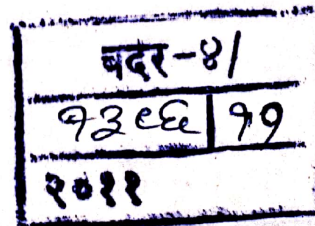 बदर-४/
१३९६ | १९
२०११